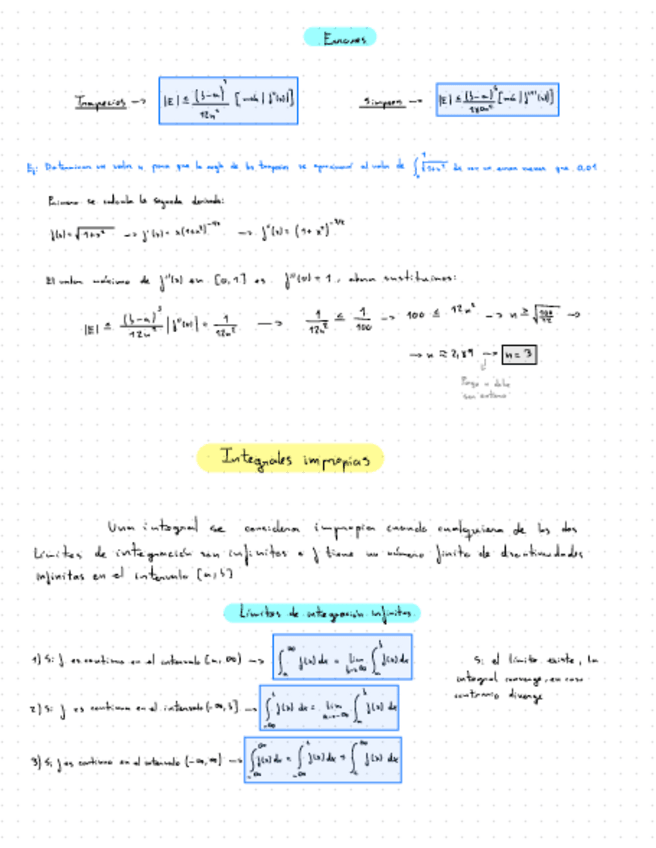 Errores
Trapecios → |E| ≤ (b-a)³/12n² [máx |f''(x)|]
Simpson → |E| ≤ (b-a)⁵/180n⁴ [máx |f⁗(x)|]
Ej: Determinar un valor n para que la regla de los trapecios se aproxime al valor de ∫₀¹ √1+x² de con un error menor que 0,01
Primero se calcula la segunda derivada:
f(x) = √1+x² → f'(x) = x(1+x²)^-1/2 → f''(x) = (1+x²)^-3/2
El valor máximo de f''(x) en [0,1] es f''(0) = 1, ahora sustituimos:
|E| ≤ (b-a)³/12n² |f''(0)| = 1/12n² → 1/12n² ≤ 1/100 → 100 ≤ 12n² → n ≥ √100/12 →
→ n ≥ 2,89 → n = 3
n debe
ser entero
Integrales impropias
Una integral se considera impropia cuando cualquiera de los dos
límites de integración son infinitos o f tiene un número finito de discontinuidades
infinitas en el intervalo [a,b]
Límites de integración infinitos
1) Si f es continua en el intervalo [a, ∞) → ∫ₐ^∞ f(x) dx = lim b→∞ ∫ₐᵇ f(x) dx
Si el límite existe, la
integral converge, en caso
contrario diverge
2) Si f es continua en el intervalo (-∞, b] → ∫₋∞ᵇ f(x) dx = lim a→-∞ ∫ₐᵇ f(x) dx
3) Si f es continua en el intervalo (-∞, ∞) → ∫₋∞^∞ f(x) dx = ∫₋∞ᶜ f(x) dx + ∫c^∞ f(x) dx